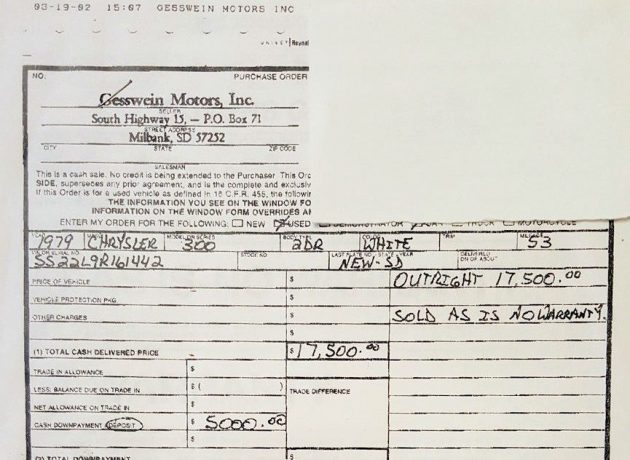 03-19-02 15:07 GESSWEIN MOTORS INC
NO. PURCHASE ORDER
Gesswein Motors, Inc.
SELLER
South Highway 15, — P.O. Box 71
STREET ADDRESS
Milbank, SD 57252
CITY STATE ZIP CODE
SALESMAN
This is a cash sale. No credit is being extended to the Purchaser. This Ord
SIDE, supersedes any prior agreement, and is the complete and exclusiv
If this Order is for a used vehicle as defined in 16 C.F.R. 455, the followi
THE INFORMATION YOU SEE ON THE WINDOW FO
INFORMATION ON THE WINDOW FORM OVERRIDES A
ENTER MY ORDER FOR THE FOLLOWING: NEW USED DEMONSTRATOR CAR TRUCK MOTORCYCLE
YEAR MAKE MODEL OR SERIES BODY TYPE COLOR TRIM MILEAGE
1979 CHRYSLER 300 2DR WHITE 53
STOCK NO DELIVERED ON OR ABOUT
SS22L9R161442 NEW-SD
PRICE OF VEHICLE $ OUTRIGHT 17,500.00
VEHICLE PROTECTION PKG $
OTHER CHARGES $ SOLD AS IS NO WARRANTY.
$
(1) TOTAL CASH DELIVERED PRICE $17,500.00
TRADE IN ALLOWANCE $
LESS: BALANCE DUE ON TRADE IN $ ( ) TRADE DIFFERENCE
NET ALLOWANCE ON TRADE IN $
CASH DOWNPAYMENT (DEPOSIT) $ 5000.00
$
(2) TOTAL DOWNPAYMENT $